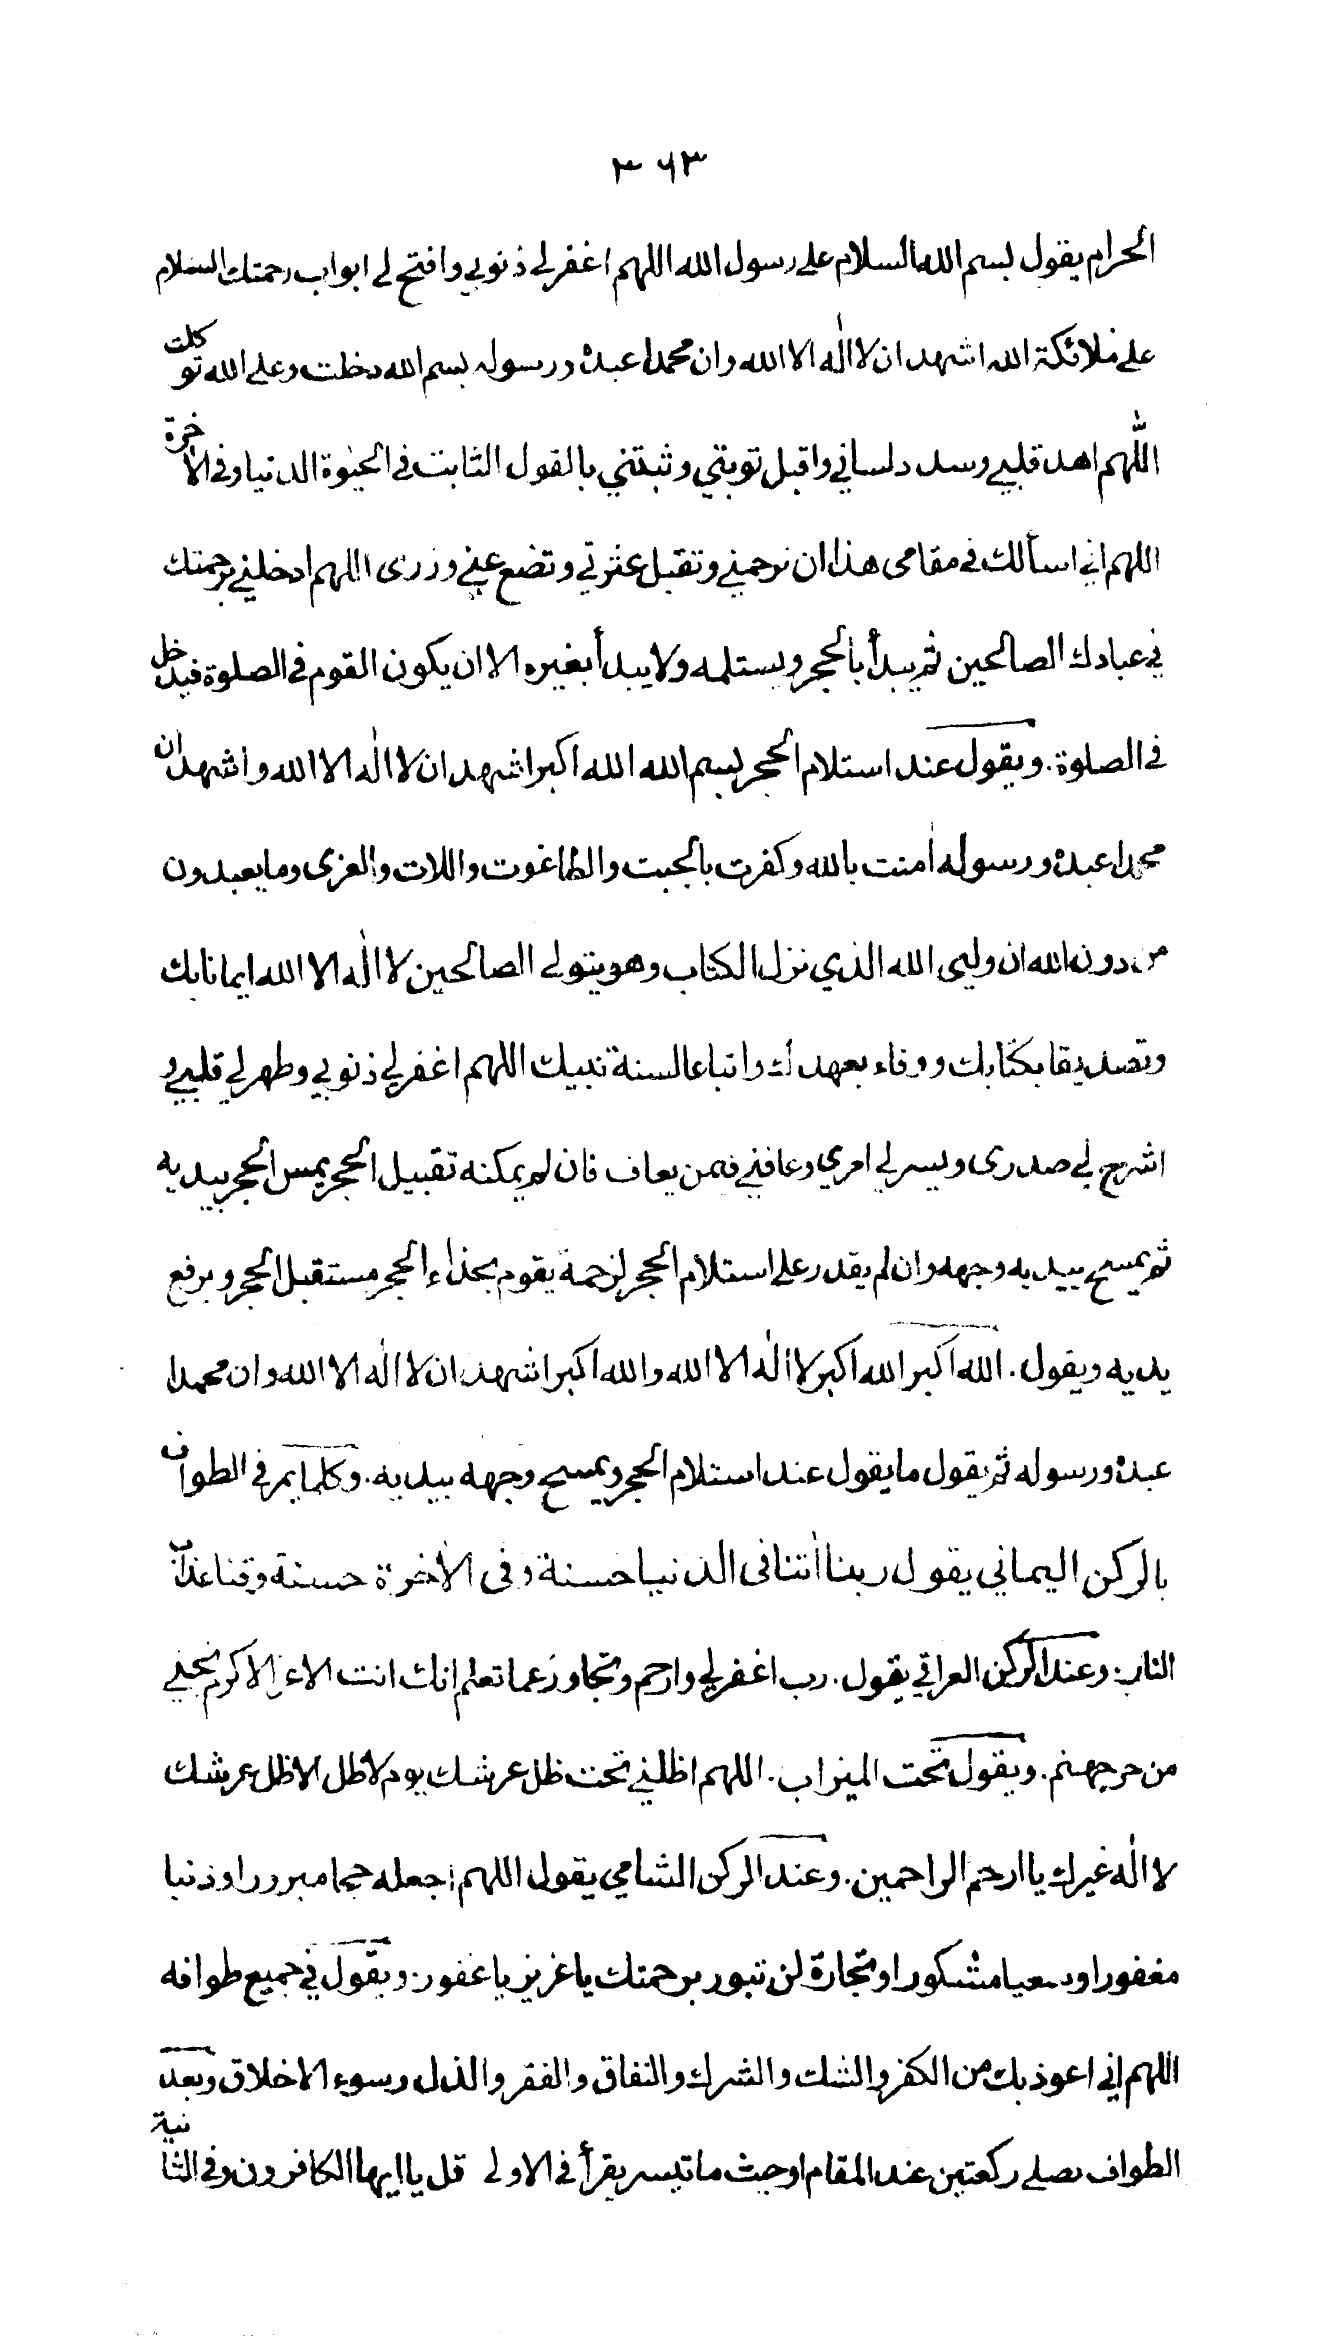 ٣٦٣
الحرام يقول بسم الله السلام على رسول الله اللهم اغفر لي ذنوبي وافتح لي ابواب رحمتك السلام
على ملائكة الله اشهد ان لا اله الا الله وان محمدا عبده ورسوله بسم الله دخلت وعلى الله توكلت
اللهم اهد قلبي وسدد لساني واقبل توبتي وثبتني بالقول الثابت في الحيوة الدنيا وفي الاخرة
اللهم اني اسألك في مقامي هذا ان ترحمني وتقبل عثرتي وتضع عني وزرى اللهم ادخلني برحمتك
في عبادك الصالحين ثم يبدأ بالحجر ويستلمه ولا يبدأ بغيره الا ان يكون القوم في الصلوة فيدخل
في الصلوة. ويقول عند استلام الحجر بسم الله الله اكبر اشهد ان لا اله الا الله واشهد ان
محمدا عبده ورسوله امنت بالله وكفرت بالجبت والطاغوت واللات والعزى وما يعبدون
من دون الله ان وليى الله الذي نزل الكتاب وهو يتولى الصالحين لا اله الا الله ايمانا بك
وتصديقا بكتابك ووفاء بعهدك واتباعا لسنة نبيك اللهم اغفر لي ذنوبي وطهر لي قلبي و
اشرح لي صدرى ويسر لي امري وعافني فيمن يعاف فان لم يمكنه تقبيل الحجر يمس الحجر بيديه
ثم يمسح بيديه وجهه وان لم يقدر على استلام الحجر لزحمة يقوم بحذاء الحجر مستقبل الحجر ويرفع
يديه ويقول. الله اكبر الله اكبر لا اله الا الله والله اكبر اشهد ان لا اله الا الله وان محمدا
عبده ورسوله ثم يقول ما يقول عند استلام الحجر ويمسح وجهه بيديه. وكلما يمر في الطواف
بالركن اليماني يقول ربنا اتنا فى الدنيا حسنة وفى الاخرة حسنة وقنا عذاب
النار. وعند الركن العراقي يقول. رب اغفر لي وارحم وتجاوز عما تعلم انك انت الاعز الاكرم نجني
من حر جهنم. ويقول تحت الميزاب. اللهم اظلني تحت ظل عرشك يوم لا ظل الا ظل عرشك
لا اله غيرك يا ارحم الراحمين. وعند الركن الشامي يقول اللهم اجعله حجا مبرورا وذنبا
مغفورا وسعيا مشكورا وتجارة لن تبور برحمتك يا عزيز يا غفور. ويقول في جميع طوافه
اللهم إني اعوذ بك من الكفر والشك والشرك والنفاق والفقر والذل وسوء الاخلاق وبعد
الطواف يصلي ركعتين عند المقام او حيث ما تيسر يقرأ في الاولى قل يا ايها الكافرون وفي الثانية